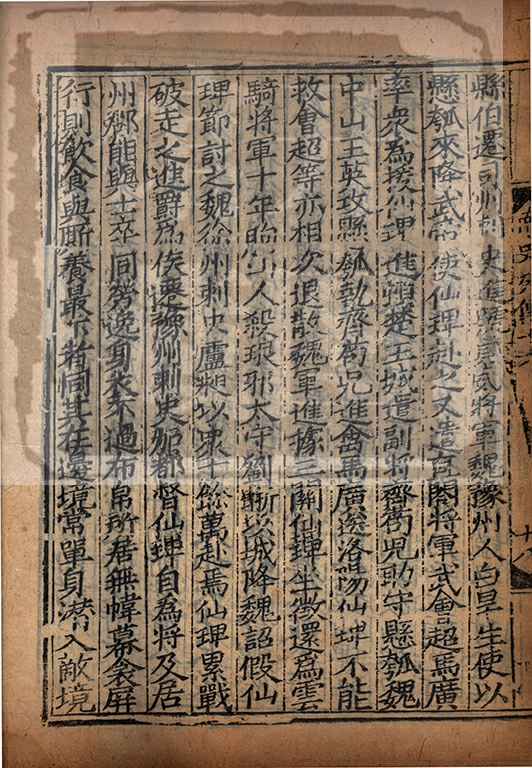 縣伯遷司州刺史進號貞威將軍魏豫州人白早生使以
懸瓠來降武帝使仙琕赴之又遣直閣將軍武會超馬廣
率衆為援仙琕進頓楚王城遣副將齊苟兒助守懸瓠魏
中山王英攻縣瓠執齊苟兒進禽馬廣送洛陽仙琕不能
救會超等亦相次退散魏軍進據三關仙琕坐徵還為雲
騎將軍十年朐山人殺琅邪太守劉晣以城降魏詔假仙
琕節討之魏徐州刺史盧昶以衆十餘萬赴焉仙琕累戰
破走之進爵為侯遷豫州刺史加都督仙琕自為將及居
州郡能與士卒同勞逸身衣不過布帛所居無幃幕衾屏
行則飲食與厮養最下者同其在邊境常單身潛入敵境